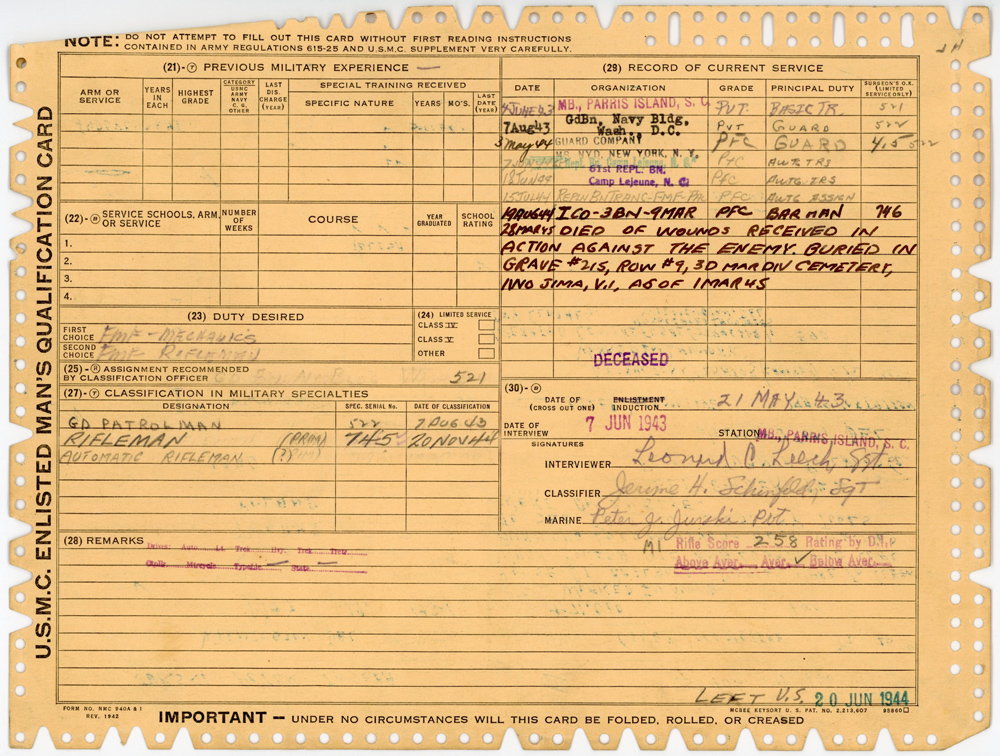 NOTE: DO NOT ATTEMPT TO FILL OUT THIS CARD WITHOUT FIRST READING INSTRUCTIONS
CONTAINED IN ARMY REGULATIONS 615-25 AND U.S.M.C. SUPPLEMENT VERY CAREFULLY.
U.S.M.C. ENLISTED MAN'S QUALIFICATION CARD
(21)-Y PREVIOUS MILITARY EXPERIENCE —
ARM OR SERVICE
YEARS IN EACH
HIGHEST GRADE
CATEGORY USMC ARMY NAVY C. G. OTHER
LAST DIS. CHARGE (YEAR)
SPECIAL TRAINING RECEIVED
SPECIFIC NATURE YEARS MO'S. LAST DATE (YEAR)
(22)-R SERVICE SCHOOLS, ARM, OR SERVICE
NUMBER OF WEEKS
COURSE
YEAR GRADUATED
SCHOOL RATING
1.
2.
3.
4.
(23) DUTY DESIRED
FIRST CHOICE FMF - MECHANICS
SECOND CHOICE FMF RIFLEMAN
(24) LIMITED SERVICE
CLASS IV
CLASS V
OTHER
(25)-R ASSIGNMENT RECOMMENDED
BY CLASSIFICATION OFFICER 521
(27)-Y CLASSIFICATION IN MILITARY SPECIALTIES
DESIGNATION SPEC. SERIAL No. DATE OF CLASSIFICATION
GD PATROLMAN 522 7 AUG 43
RIFLEMAN (PRIM) 745 20 NOV 44
AUTOMATIC RIFLEMAN
(28) REMARKS
(29) RECORD OF CURRENT SERVICE
DATE ORGANIZATION GRADE PRINCIPAL DUTY SURGEON'S O.K. (LIMITED SERVICE ONLY)
4 JUNE 43 MB., PARRIS ISLAND, S. C. PVT. BASIC TR. 521
7 Aug 43 GdBn, Navy Bldg, Wash., D.C. PVT GUARD 522
3 May 44 GUARD COMPANY NYD, NEW YORK, N. Y. PFC GUARD 4.5 522
PFC AWTG TRS
18 JUN 44 61st REPL. BN. Camp Lejeune, N. C. PFC AWTG TRS
15 JUL 44 PFC AWTG ASSIGN
19 AUG 44 I CO-3BN-9MAR PFC BAR MAN 746
28 MAR 45 DIED OF WOUNDS RECEIVED IN
ACTION AGAINST THE ENEMY. BURIED IN
GRAVE #215, ROW #9, 3D MAR DIV CEMETERY,
IWO JIMA, V.I, AS OF 1 MAR 45
DECEASED
(30)-R
DATE OF ENLISTMENT
(CROSS OUT ONE) INDUCTION 21 MAY 43
DATE OF INTERVIEW 7 JUN 1943 STATION MB., PARRIS ISLAND, S. C.
SIGNATURES
INTERVIEWER Leonard C. Leech, Sgt.
CLASSIFIER Jerome H. Sgt
MARINE Peter J. Pvt.
M1 Rifle Score 258 Rating by D.I.
Above Aver. Aver. ✓ Below Aver.
LEFT U.S. 20 JUN 1944
FORM NO. NMC 940A & I
REV. 1942
IMPORTANT — UNDER NO CIRCUMSTANCES WILL THIS CARD BE FOLDED, ROLLED, OR CREASED
MCBEE KEYSORT U. S. PAT. NO. 2,213,607 95860